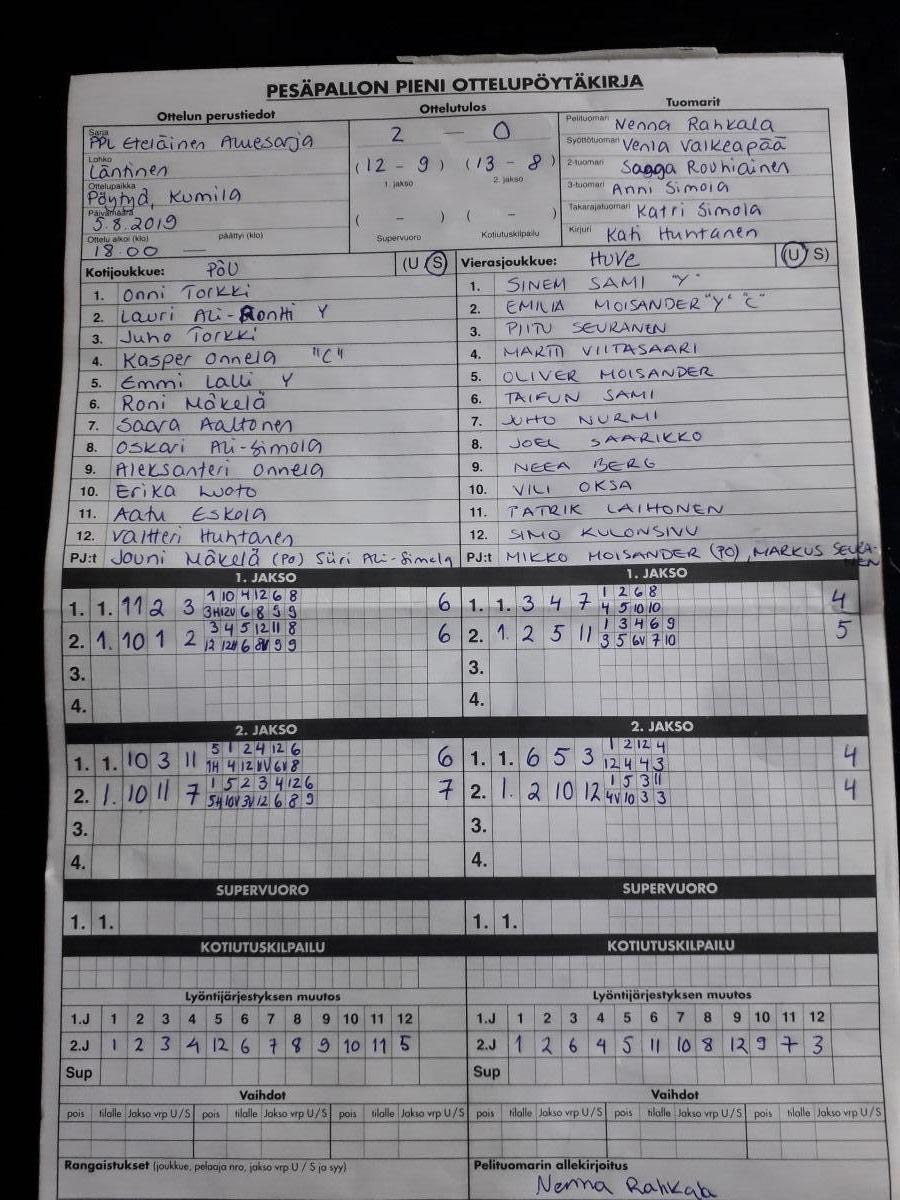 PESÄPALLON PIENI OTTELUPÖYTÄKIRJA
Ottelun perustiedot Ottelutulos Tuomarit
Sarja PPL Eteläinen Aluesarja
Lohko Läntinen
Ottelupaikka Pöytyä, Kumila
Päivämäärä 5.8.2019
Ottelu alkoi (klo) 18.00 päättyi (klo) —
2 — 0
(12 - 9) (13 - 8)
1. jakso 2. jakso
( - ) ( - )
Supervuoro Kotiutuskilpailu
Pelituomari Nenna Rahkala
Syöttötuomari Venla Valkeapää
2-tuomari Saaga Rouhiainen
3-tuomari Anni Simola
Takarajatuomari Katri Simola
Kirjuri Kati Huhtanen
Kotijoukkue: PöU (U S)
1. Onni Torkki
2. Lauri Ali-Rontti Y
3. Juho Torkki
4. Kasper Onnela "C"
5. Emmi Lalli Y
6. Roni Mäkelä
7. Saara Aaltonen
8. Oskari Ali-Simola
9. Aleksanteri Onnela
10. Erika Luoto
11. Aatu Eskola
12. Valtteri Huhtanen
PJ:t Jouni Mäkelä (PO) Siiri Ali-Simela
Vierasjoukkue: HUVE (U S)
1. SINEM SAMI "Y"
2. EMILIA MOISANDER "Y" "C"
3. PIITU SEURANEN
4. MARTTI VIITASAARI
5. OLIVER MOISANDER
6. TAIFUN SAMI
7. JUHO NURMI
8. JOEL SAARIKKO
9. NEEA BERG
10. VILI OKSA
11. PATRIK LAIHONEN
12. SIMO KULONSIVU
PJ:t MIKKO MOISANDER (PO), MARKUS SEURA-
NEN
1. JAKSO 1. JAKSO
1 10 4 12 6 8 1 2 6 8
1. 1. 11 2 3 6 1. 1. 3 4 7 4
3H 12V 6 8 9 9 4 5 10 10
3 4 5 12 11 8 1 3 4 6 9
2. 1. 10 1 2 6 2. 1. 2 5 11 5
12 12H 6 8V 9 9 3 5 6V 7 10
3. 3.
4. 4.
2. JAKSO 2. JAKSO
5 1 2 4 12 6 1 2 12 4
1. 1. 10 3 11 6 1. 1. 6 5 3 4
1H 4 12 11V 6V 8 12 4 4 3
1 5 2 3 4 12 6 1 5 3 11
2. 1. 10 11 7 7 2. 1. 2 10 12 4
5H 10V 3V 12 6 8 9 4V 10 3 3
3. 3.
4. 4.
SUPERVUORO SUPERVUORO
1. 1. 1. 1.
KOTIUTUSKILPAILU KOTIUTUSKILPAILU
Lyöntijärjestyksen muutos Lyöntijärjestyksen muutos
1.J 1 2 3 4 5 6 7 8 9 10 11 12 1.J 1 2 3 4 5 6 7 8 9 10 11 12
2.J 1 2 3 4 12 6 7 8 9 10 11 5 2.J 1 2 6 4 5 11 10 8 12 9 7 3
Sup Sup
Vaihdot Vaihdot
pois tilalle Jakso vrp U/S pois tilalle Jakso vrp U/S pois tilalle Jakso vrp U/S pois tilalle Jakso vrp U/S pois tilalle Jakso vrp U/S pois tilalle Jakso vrp U/S
Rangaistukset (joukkue, pelaaja nro, jakso vrp U / S ja syy) Pelituomarin allekirjoitus
Nenna Rahkala